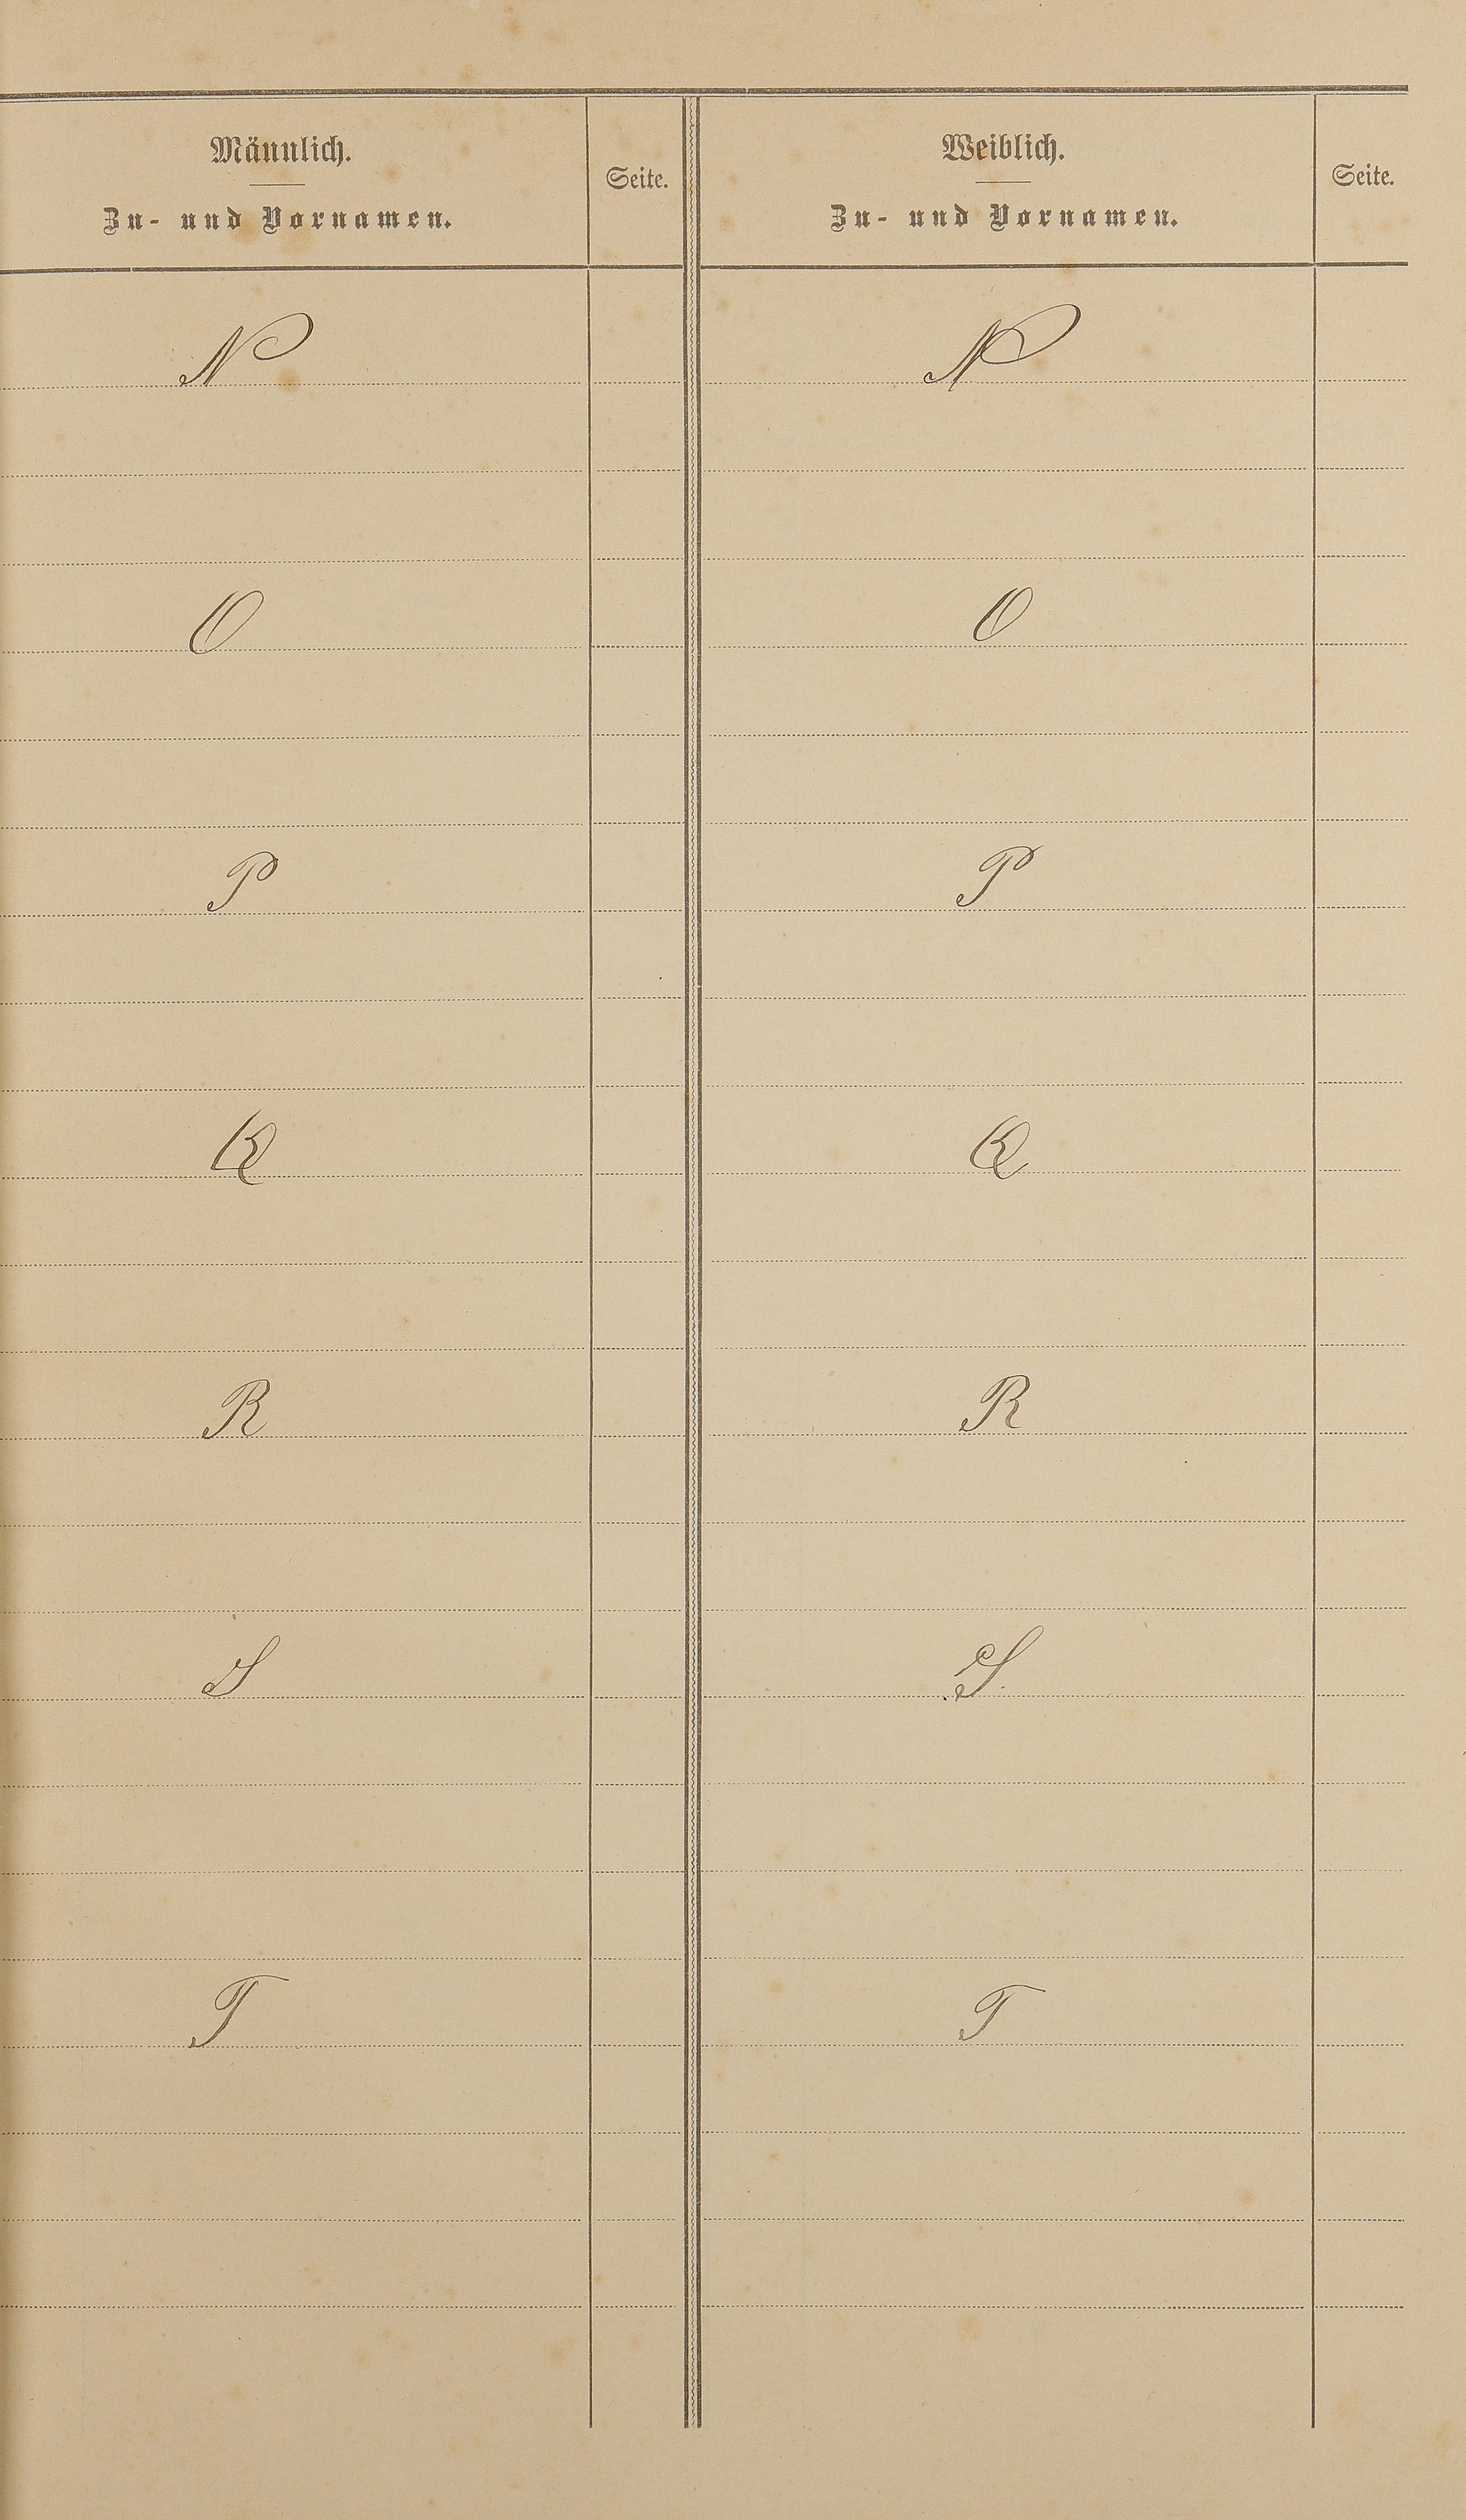 Männlich. Weiblich.
Seite. Seite.
Zu- und Vornamen. Zu- und Vornamen.
N N
O O
P P
Q Q
R R
S S.
T T